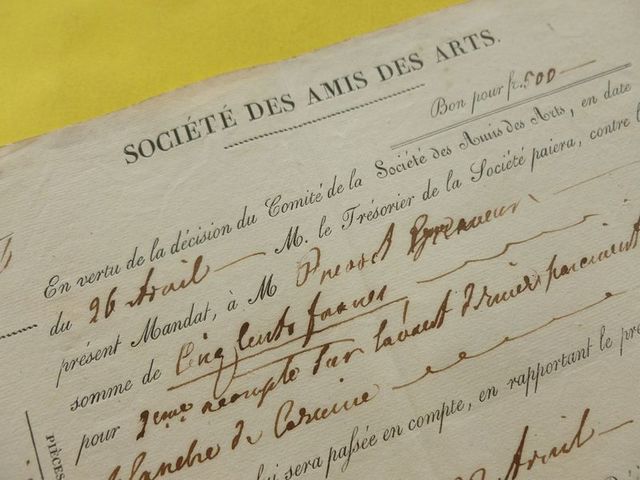 SOCIÉTÉ DES AMIS DES ARTS.
Bon pour fr. 500
En vertu de la décision du Comité de la Société des Amis des Arts, en date
du 26 Avril M. le Trésorier de la Société paiera, contre
présent Mandat, à M Graveur
somme de Cinq Cents francs
pour 2eme acompte sur
Planche de
sera passée en compte, en rapportant le
Avril
PIÈCES